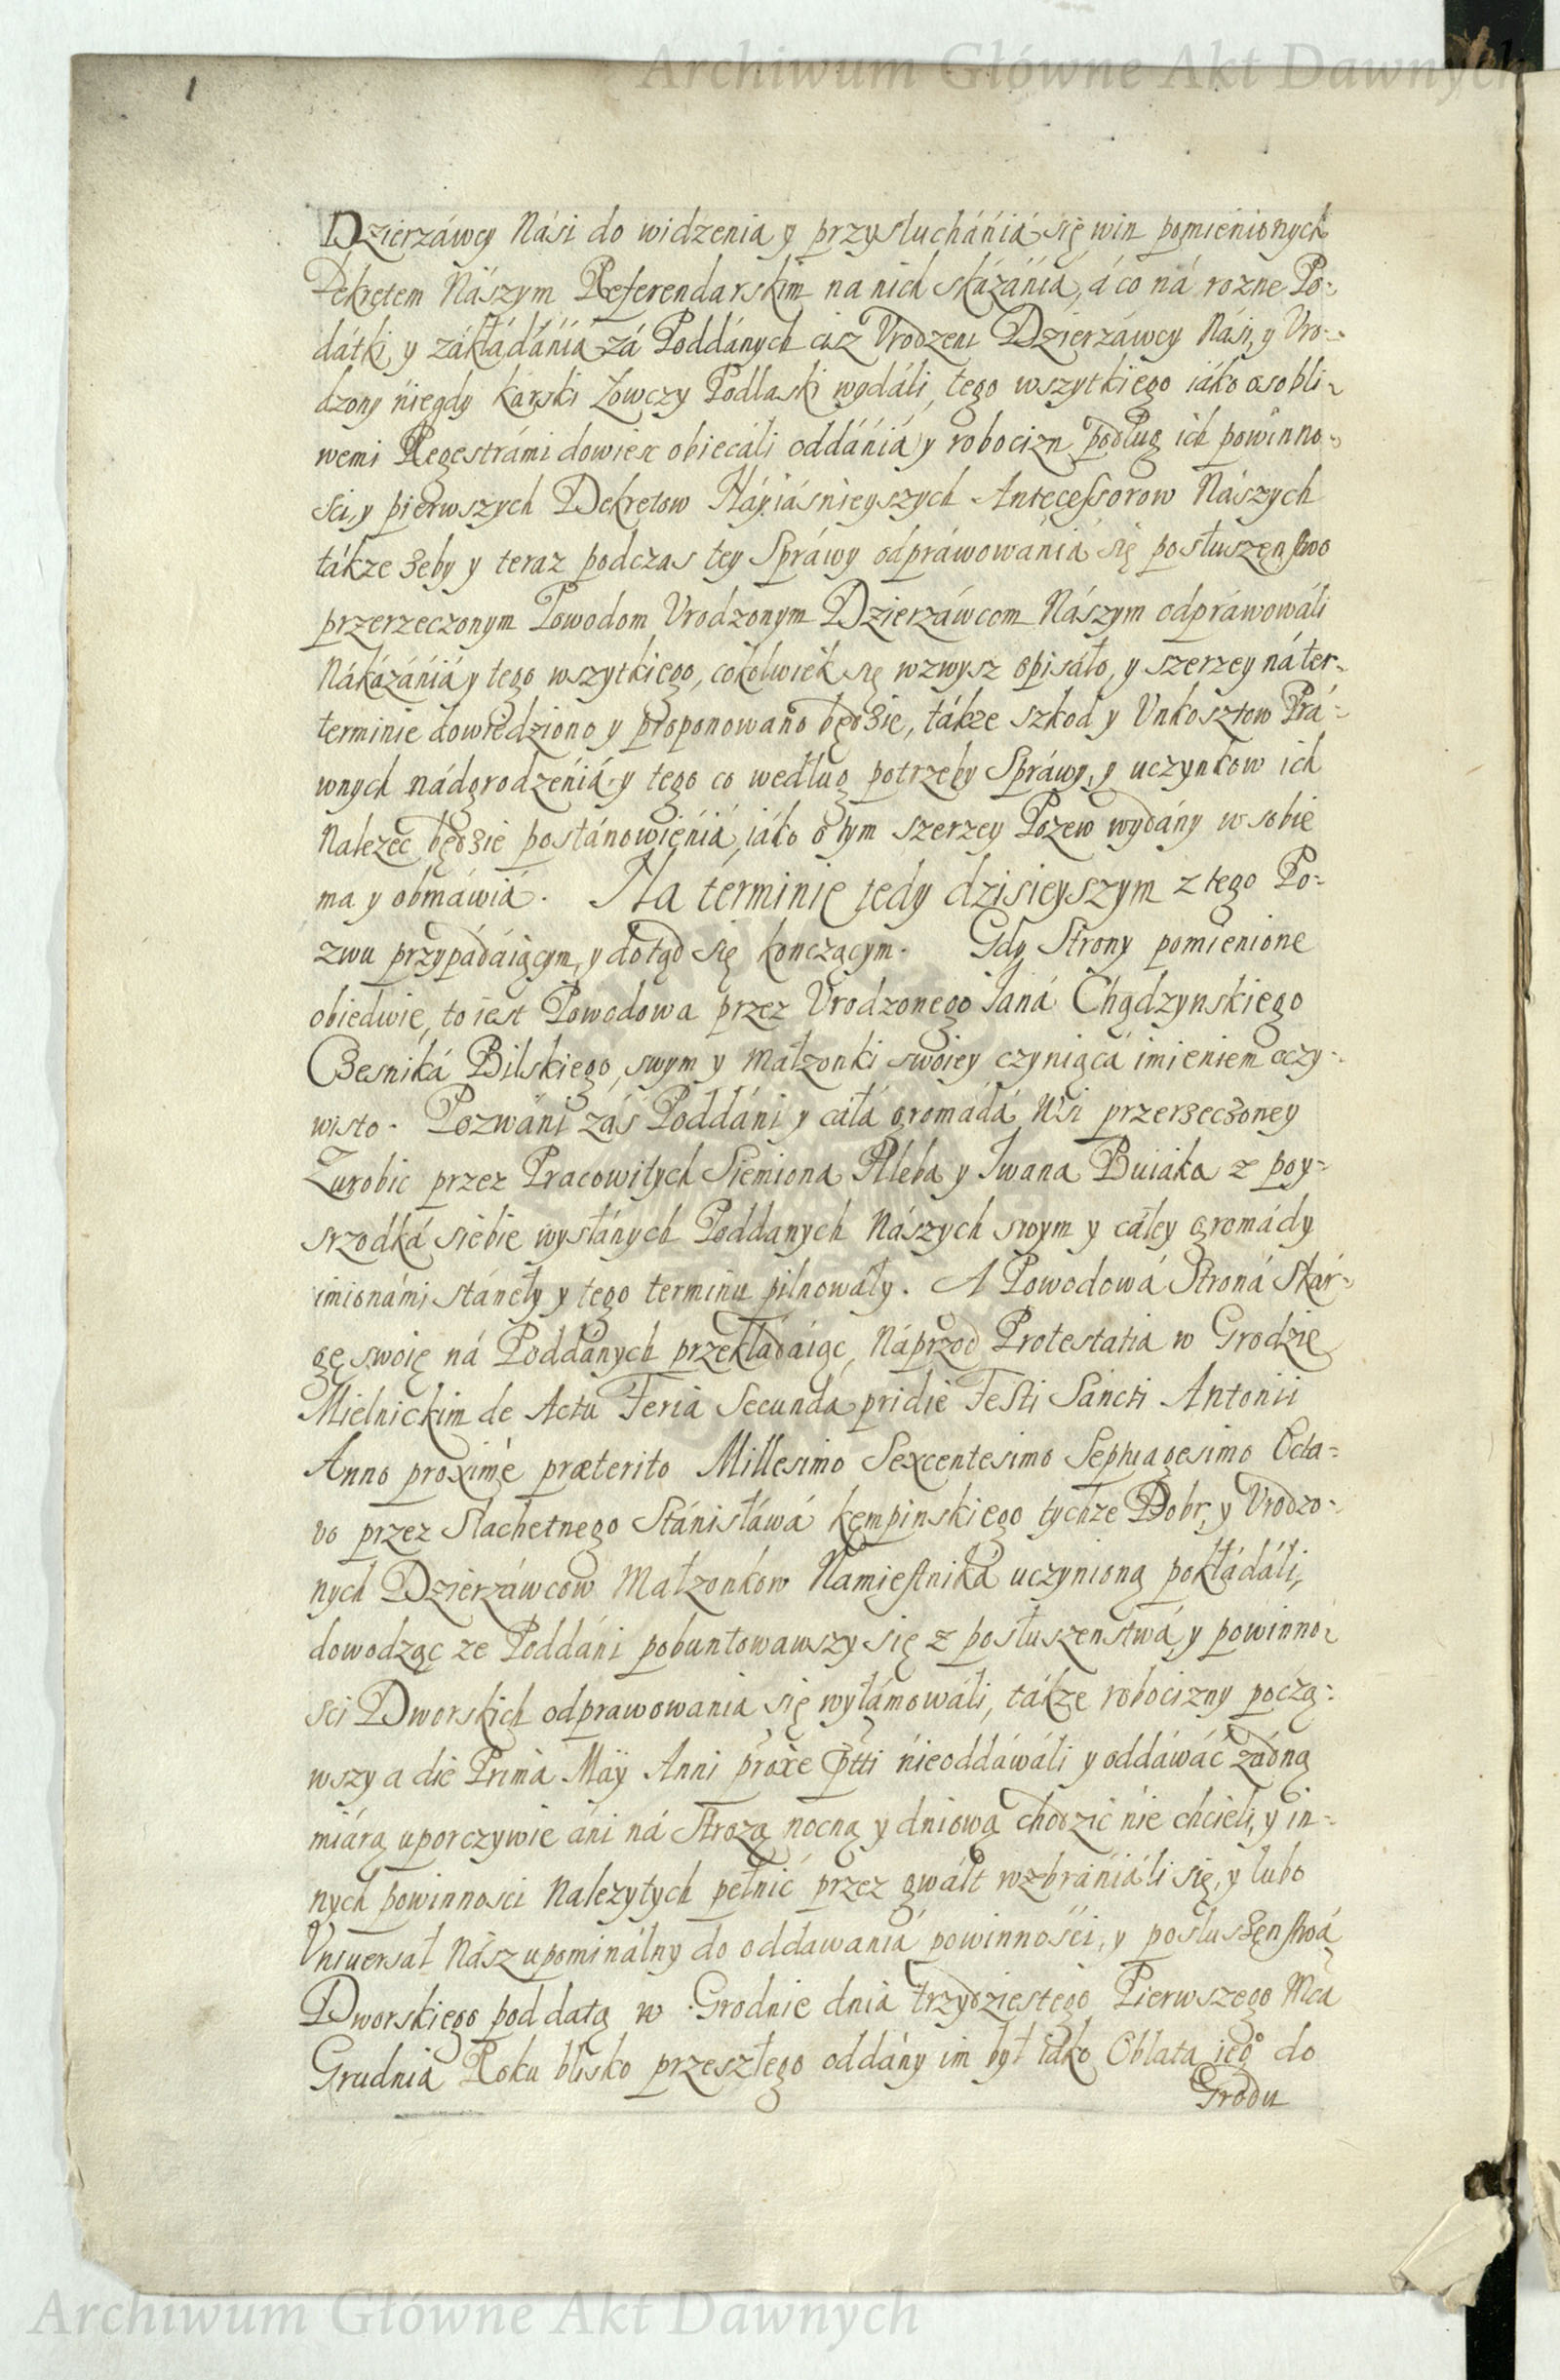 Archiwum Główne Akt Dawnych
1
Dzierzáwcy Nási do widzenia y przysłucháńiá się win pomięnionych
Dekretem Nászym Referendarskim na nich skázániá, á co ná rozne Po-
dátki y zákłádániá zá Poddánych ciż Vrodzeni Dzierzáwcy Nási, y Vro-
dzony niegdy Karski Łowczy Podlaski wydáli, tego wszytkiego iáko osobli-
wemi Regestrámi dowieść obiecáli oddániá y robocizn podług ich powinno-
sci, y pierwszych Dekretow Náyiásnieyszych Antecessorow Nászych
tákze żeby y teraz podczas tey Spráwy odpráwowániá się posłuszenstwo
przerzeczonym Powodom Vrodzonym Dzierzáwcom Nászym odpráwowáli
Nákázániá y tego wszytkiego, cokolwiek się wzwysz opisáło, y szerzey ná ter-
terminie dowiedziono y proponowano będzie, tákze szkod y Vnkosztow Prá-
wnych nádgrodzeniá y tego co według potrzeby Spráwy, y uczynkow ich
Nalezec będzie postánowieniá, iáko o tym szerzey Pozew wydány w sobie
ma y obmáwiá. Na terminie tedy dzisieyszym z tego Po-
zwu przypádáiącym, y dotąd się konczącym. Gdy Strony pomienione
obiedwie, to iest Powodowa przez Vrodzonego Janá Chądzynskiego
Czesniká Bilskiego, swym y małzonki swoiey czyniącá imieniem oczy-
wisto. Pozwáni záś Poddáni y cáłá gromádá Wsi przerzeczoney
Zurobic przez Pracowitych Siemiona Hleba y Iwana Buiaka z poy-
srzodká siebie wysłánych Poddanych Nászych swym y cáłey gromády
imionámi stánęły y tego terminu pilnowáły. A Powodowá Stroná Skár-
gę swoię ná Poddánych przekłádáiąc, Náprzod Protestatia w Grodzie
Mielnickim de Actu Feria Secunda pridie Festi Sancti Antonii
Anno proximè præterito Millesimo Sexcentesimo Septuagesimo Octa-
vo przez Slachetnego Stánisłáwá Kempinskiego tychze Dobr, y Vrodzo-
nych Dzierzáwcow Małzonkow Namiestniká uczynioną pokłádáli,
dowodząc ze Poddáni pobuntowawszy się z posłuszenstwá, y powinno-
sci Dworskich odprawowania się wyłámowáli, tákze robocizny począ-
wszy a die Prima Maÿ Anni proxe ptti nieoddáwáli y oddáwáć żadną
miárą uporczywie áni ná strozą nocną y dniową chodzić nie chcieli, y in-
nych powinnosci Nalezytych pełnić przez gwált wzbrániáli się, y lubo
Vniuersał Nász upominálny do oddawaniá powinnosci, y posłuszenstwá
Dworskiego pod datą w Grodnie dnia trzydziestego Pierwszego Mca
Grudnia Roku blisko przeszłego oddány im był iáko Oblata iego do
Grodu
Archiwum Główne Akt Dawnych